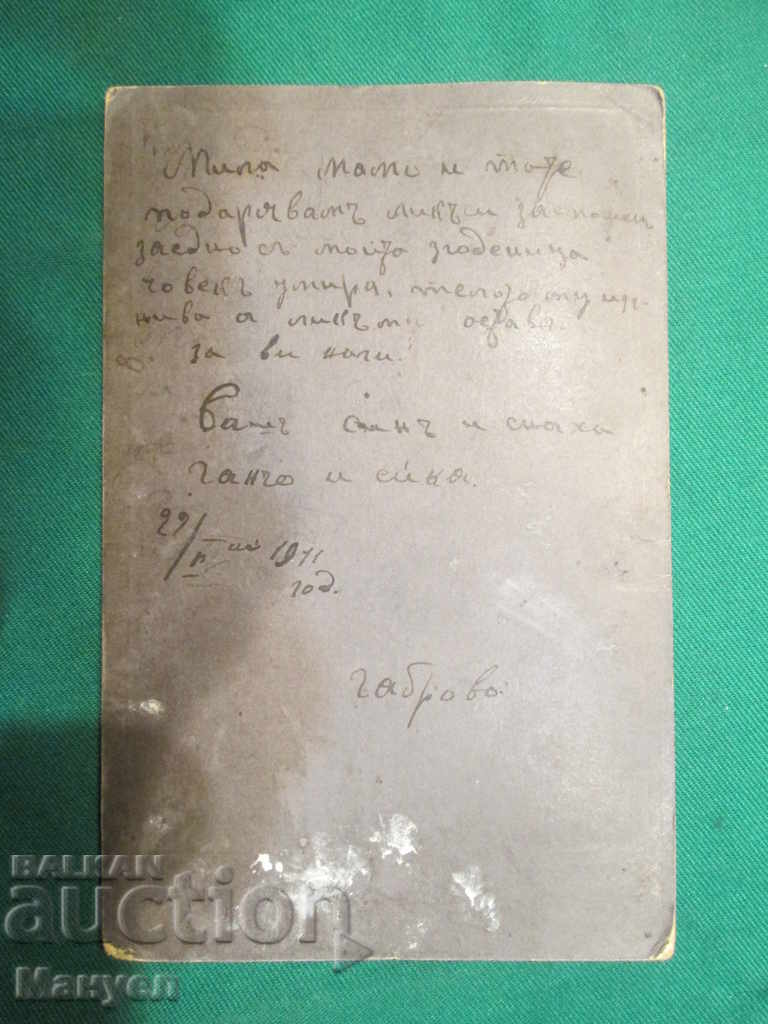 Мила мамо и тате
подарявамъ ликъми заспомен
заедно съ мойта згоденица
човекъ умира, телото му изг-
нива а ликъми остава
за ви наги.
Вашъ синъ и снаха
Ганчо и Сийка.
29/
II ий 1911
год.
Габрово.
BALKAN
auction
Мануел